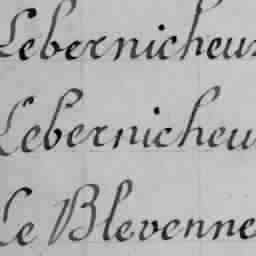 Lebernicheux
Lebernicheu
Le Blevenne